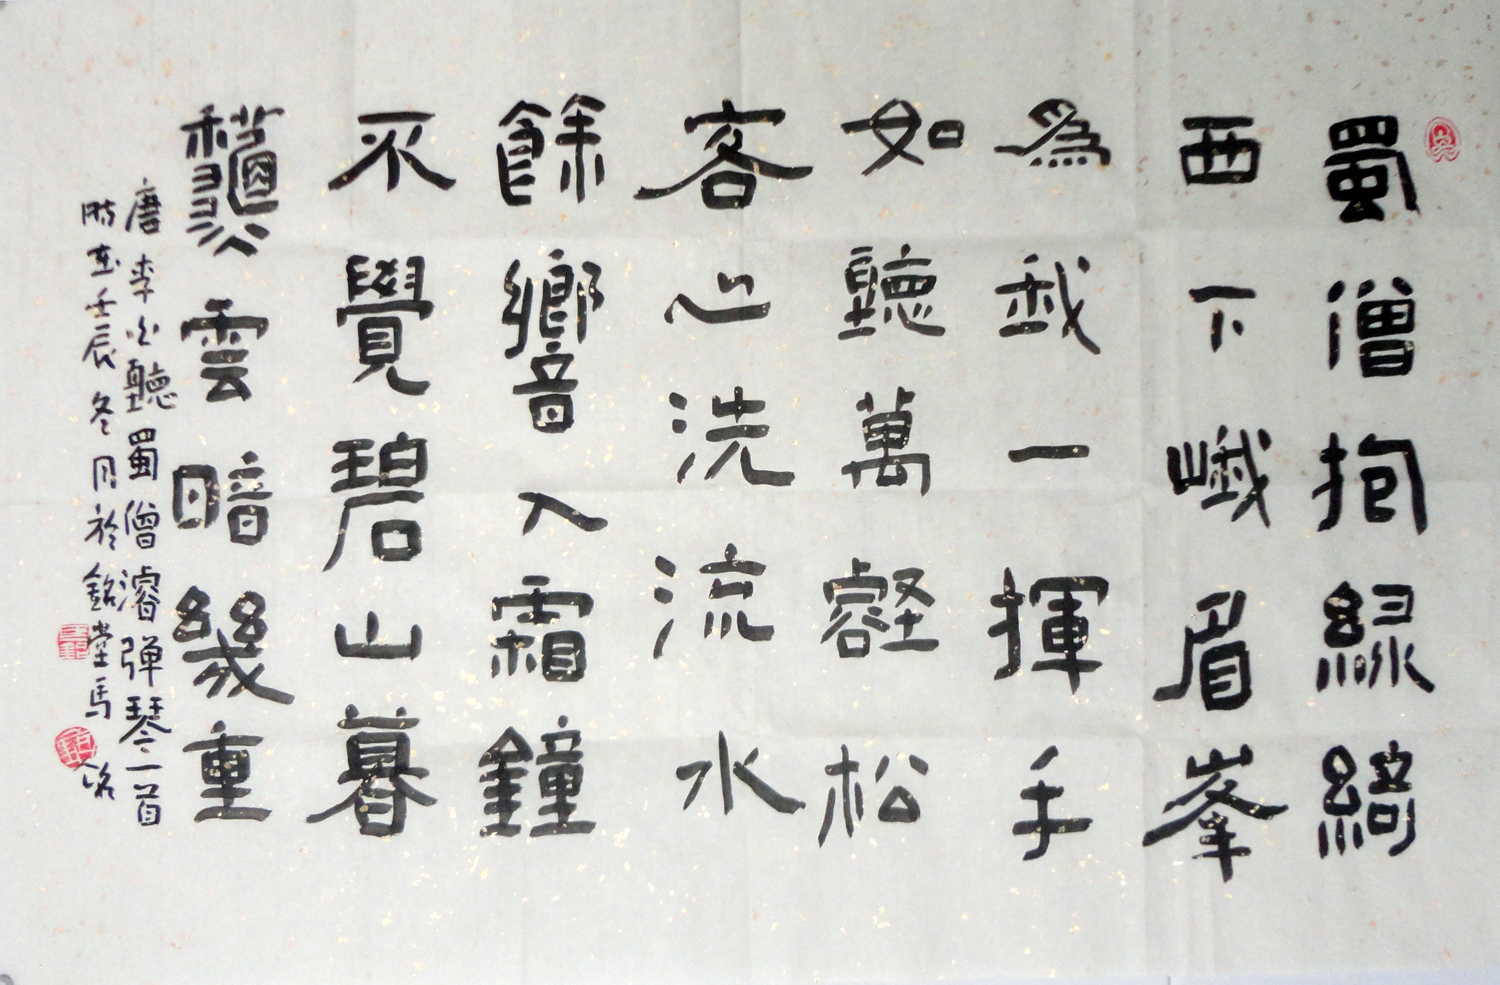 蜀僧抱緑綺
西下峨眉峯
為我一揮手
如聽萬壑松
客心洗流水
餘響入霜鐘
不覺碧山暮
龝雲暗幾重
唐李白聽蜀僧濬弹琴一首
時在壬辰冬月於銘堂馬銘